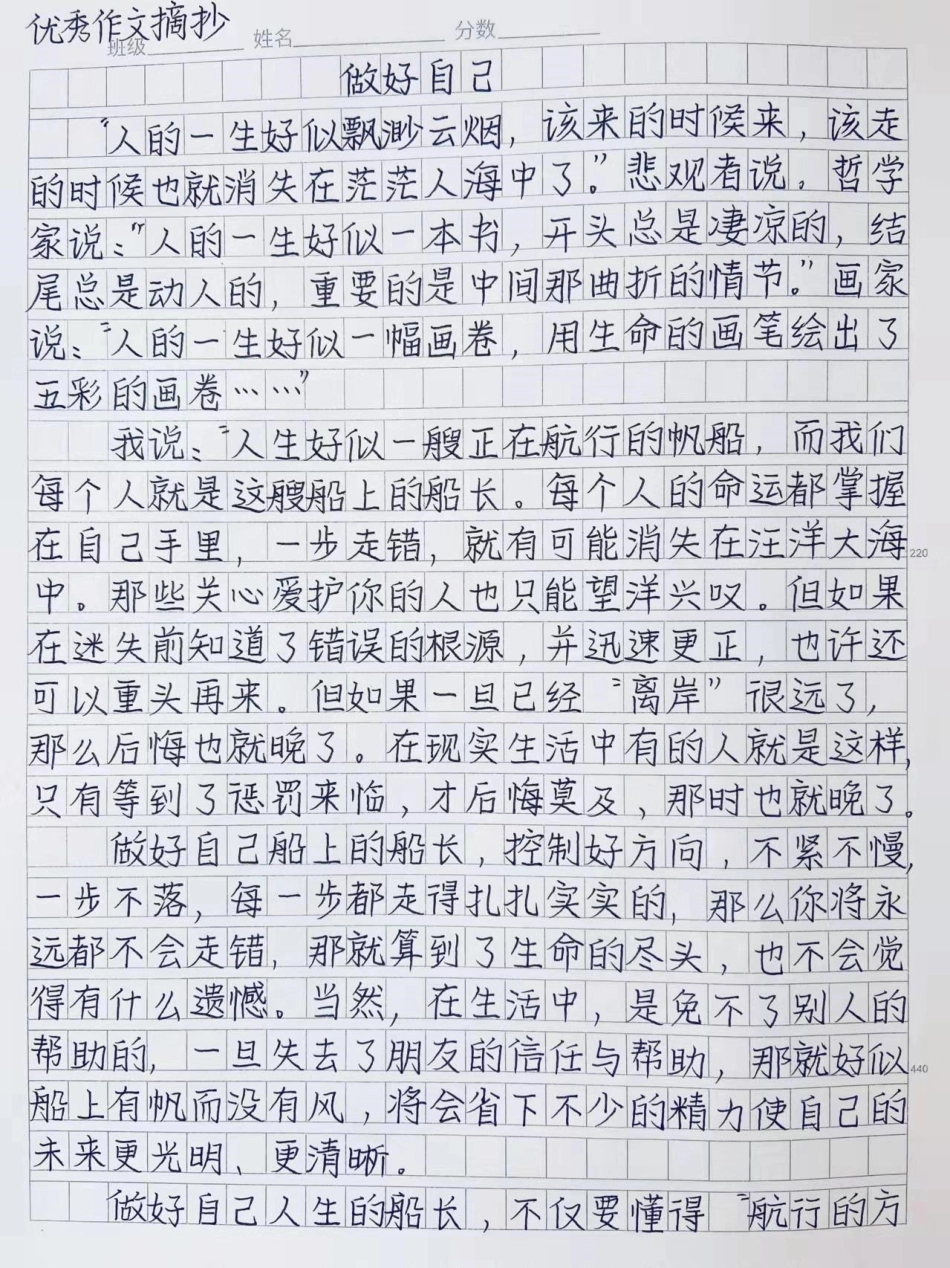 优秀作文摘抄
班级 姓名 分数
做好自己
“人的一生好似飘渺云烟，该来的时候来，该走
的时候也就消失在茫茫人海中了。”悲观者说。哲学
家说：“人的一生好似一本书，开头总是凄凉的，结
尾总是动人的，重要的是中间那曲折的情节。”画家
说：“人的一生好似一幅画卷，用生命的画笔绘出了
五彩的画卷……”
我说：“人生好似一艘正在航行的帆船，而我们
每个人就是这艘船上的船长。每个人的命运都掌握
在自己手里，一步走错，就有可能消失在汪洋大海
220
中。那些关心爱护你的人也只能望洋兴叹。但如果
在迷失前知道了错误的根源，并迅速更正，也许还
可以重头再来。但如果一旦已经“离岸”很远了，
那么后悔也就晚了。在现实生活中有的人就是这样，
只有等到了惩罚来临，才后悔莫及，那时也就晚了。
做好自己船上的船长，控制好方向，不紧不慢，
一步不落，每一步都走得扎扎实实的，那么你将永
远都不会走错，那就算到了生命的尽头，也不会觉
得有什么遗憾。当然，在生活中，是免不了别人的
帮助的，一旦失去了朋友的信任与帮助，那就好似
440
船上有帆而没有风，将会省下不少的精力使自己的
未来更光明、更清晰。
做好自己人生的船长，不仅要懂得“航行的方